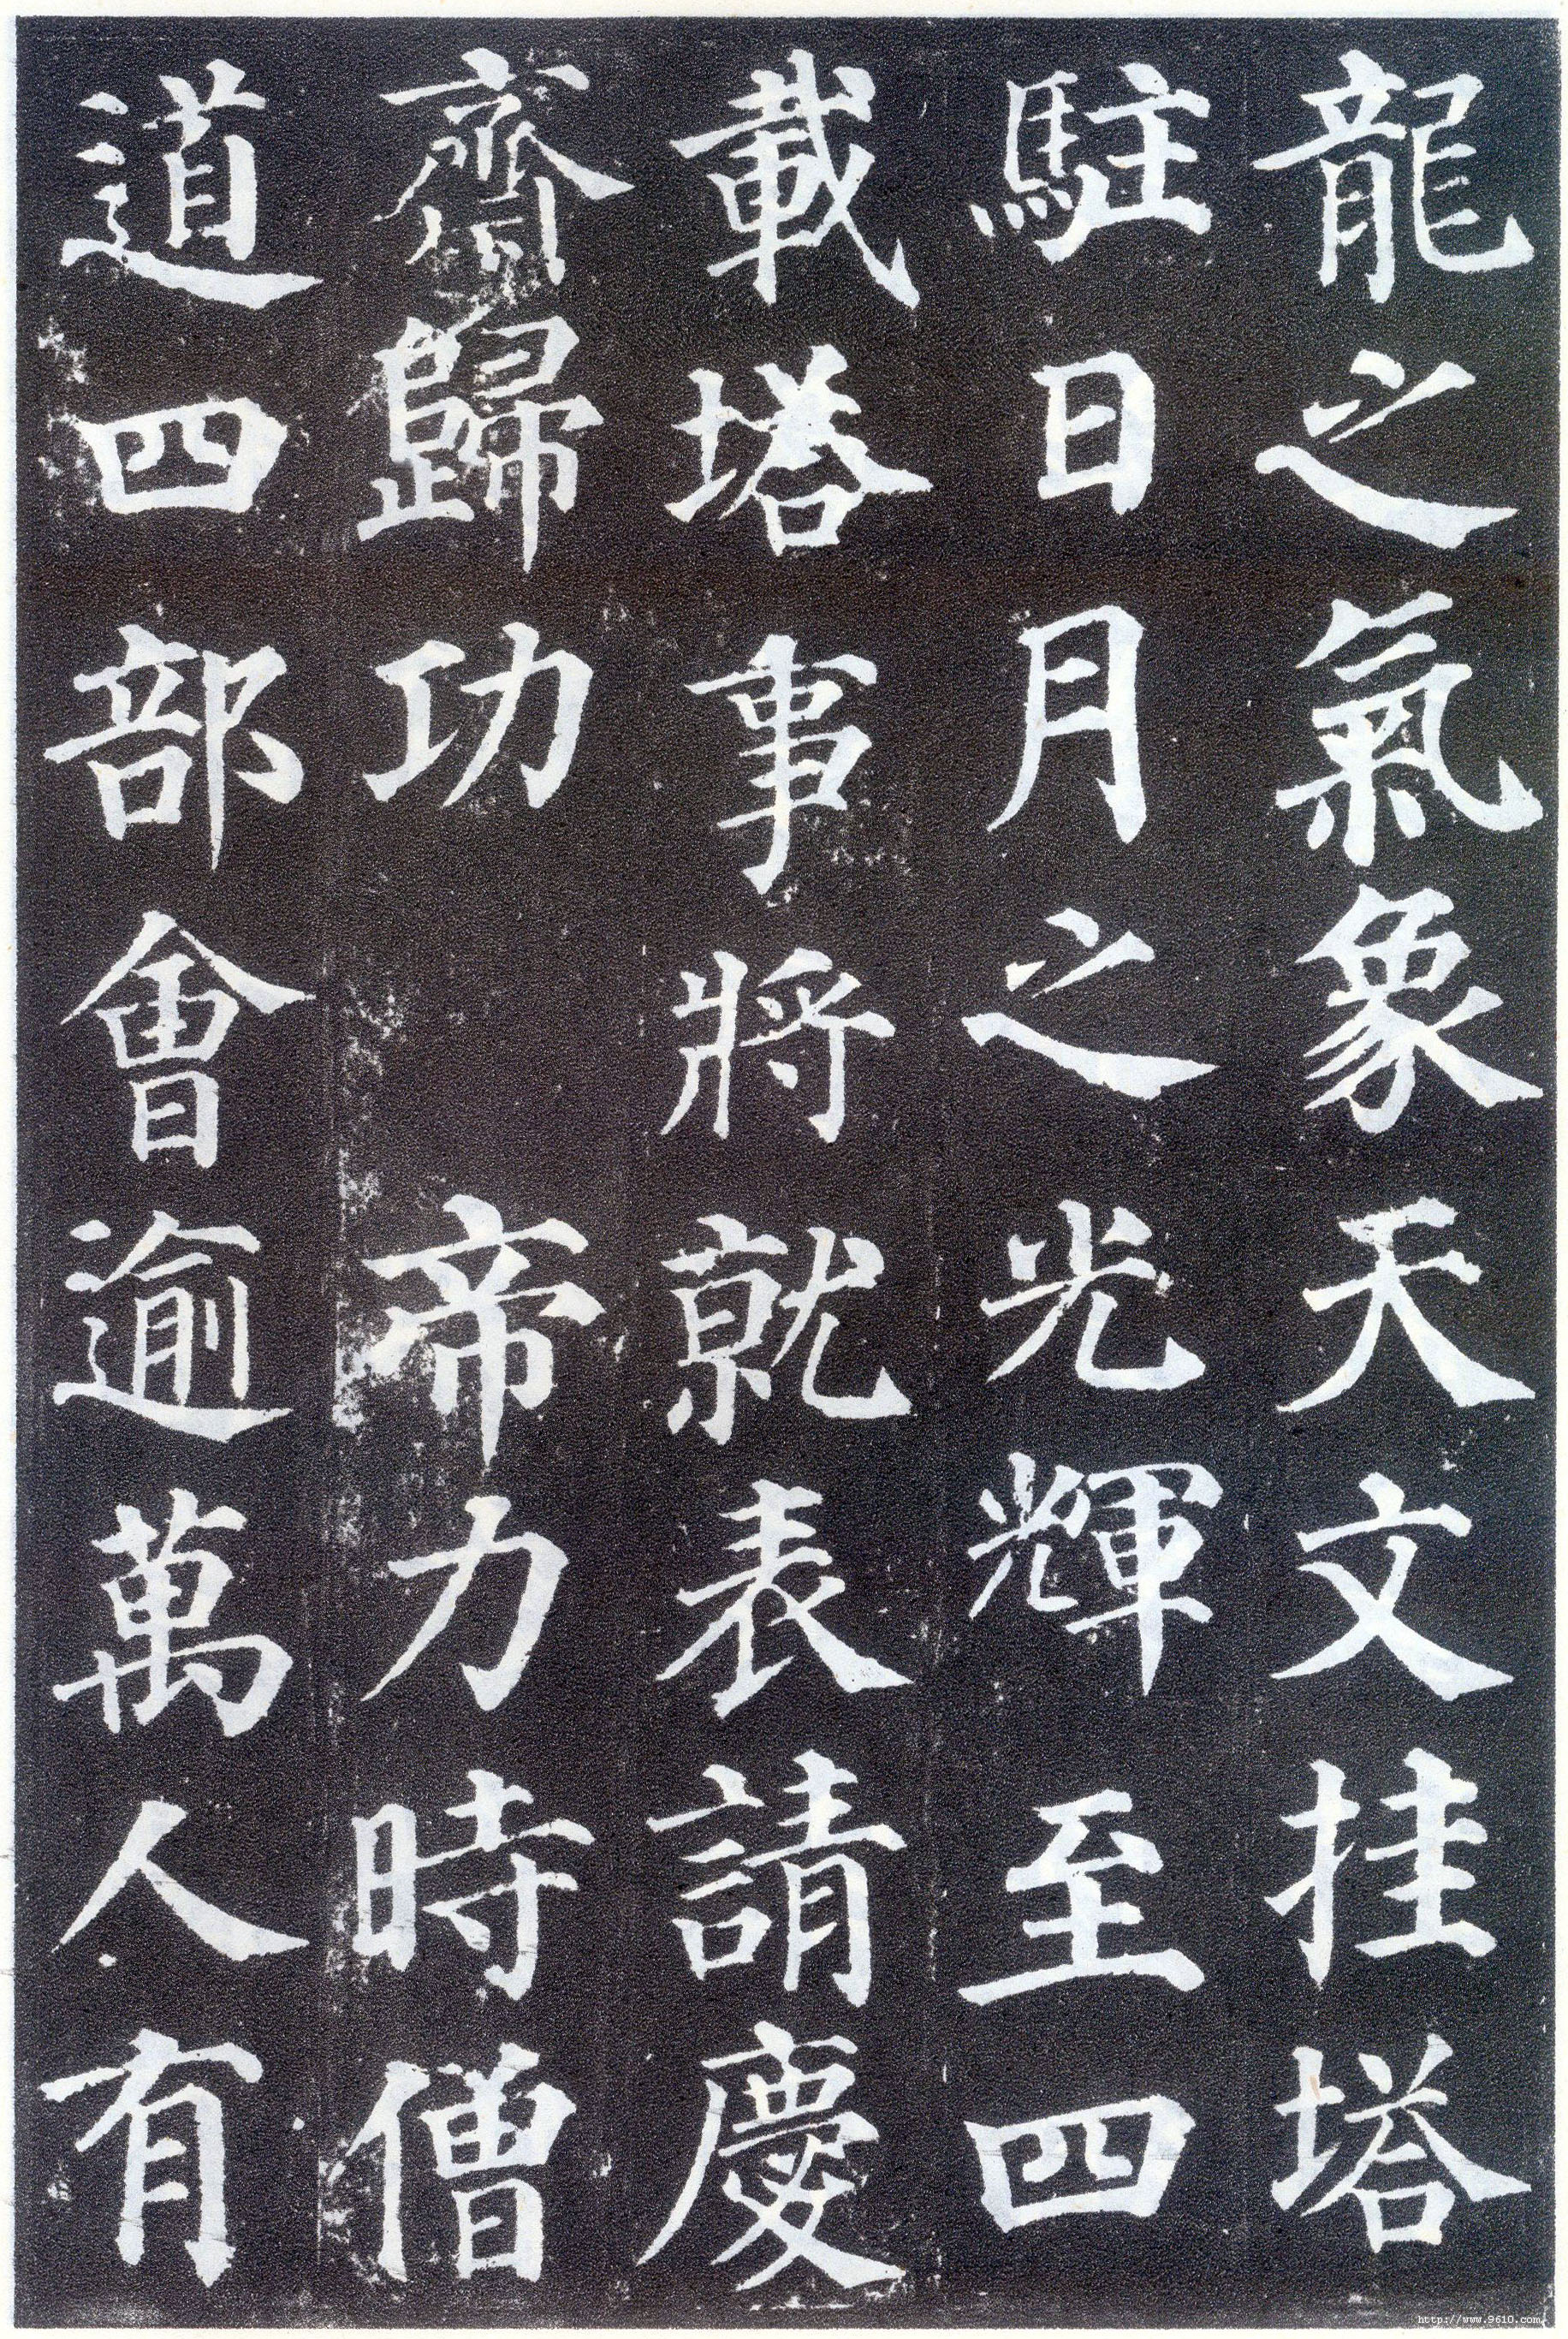 龍之氣象天文挂塔
駐日月之光輝至四
載塔事將就表請慶
齋歸功 帝力時僧
道四部會逾萬人有
http://www.9610.com